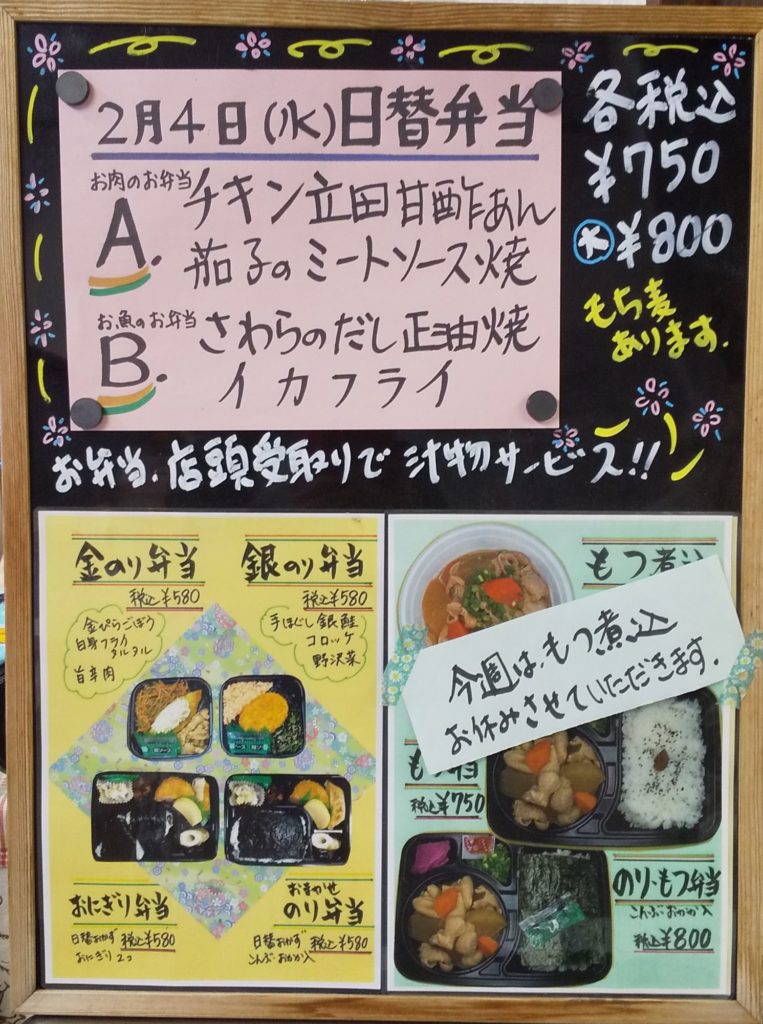 2月4日(水)日替弁当
お肉のお弁当
A.
チキン立田甘酢あん
茄子のミートソース焼
お魚のお弁当
B.
さわらのだし正油焼
イカフライ
各税込
¥750
大 ¥800
もち麦
あります.
お弁当、店頭受取りで 汁物サービス!!
金のり弁当
税込¥580
金ぴらごぼう
白身フライ
タルタル
旨辛肉
銀のり弁当
税込¥580
手ほぐし銀鮭
コロッケ
野沢菜
おにぎり弁当
日替おかず 税込¥580
おにぎり2コ
おまかせ
のり弁当
日替おかず 税込¥580
こんぶ・おかか入
もつ煮込
今週は、もつ煮込
お休みさせていただきます.
税込¥750
のり・もつ弁当
こんぶおかか入
税込¥800